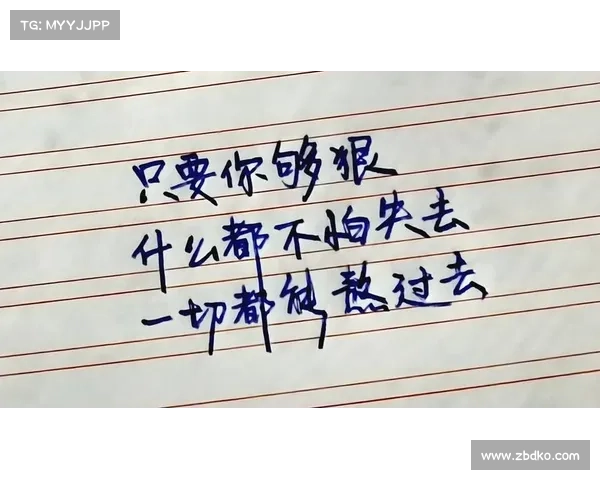 TG: MYYJJPP
只要你够狠
什么都不怕失去
一切都能熬过去
www.zbdko.com